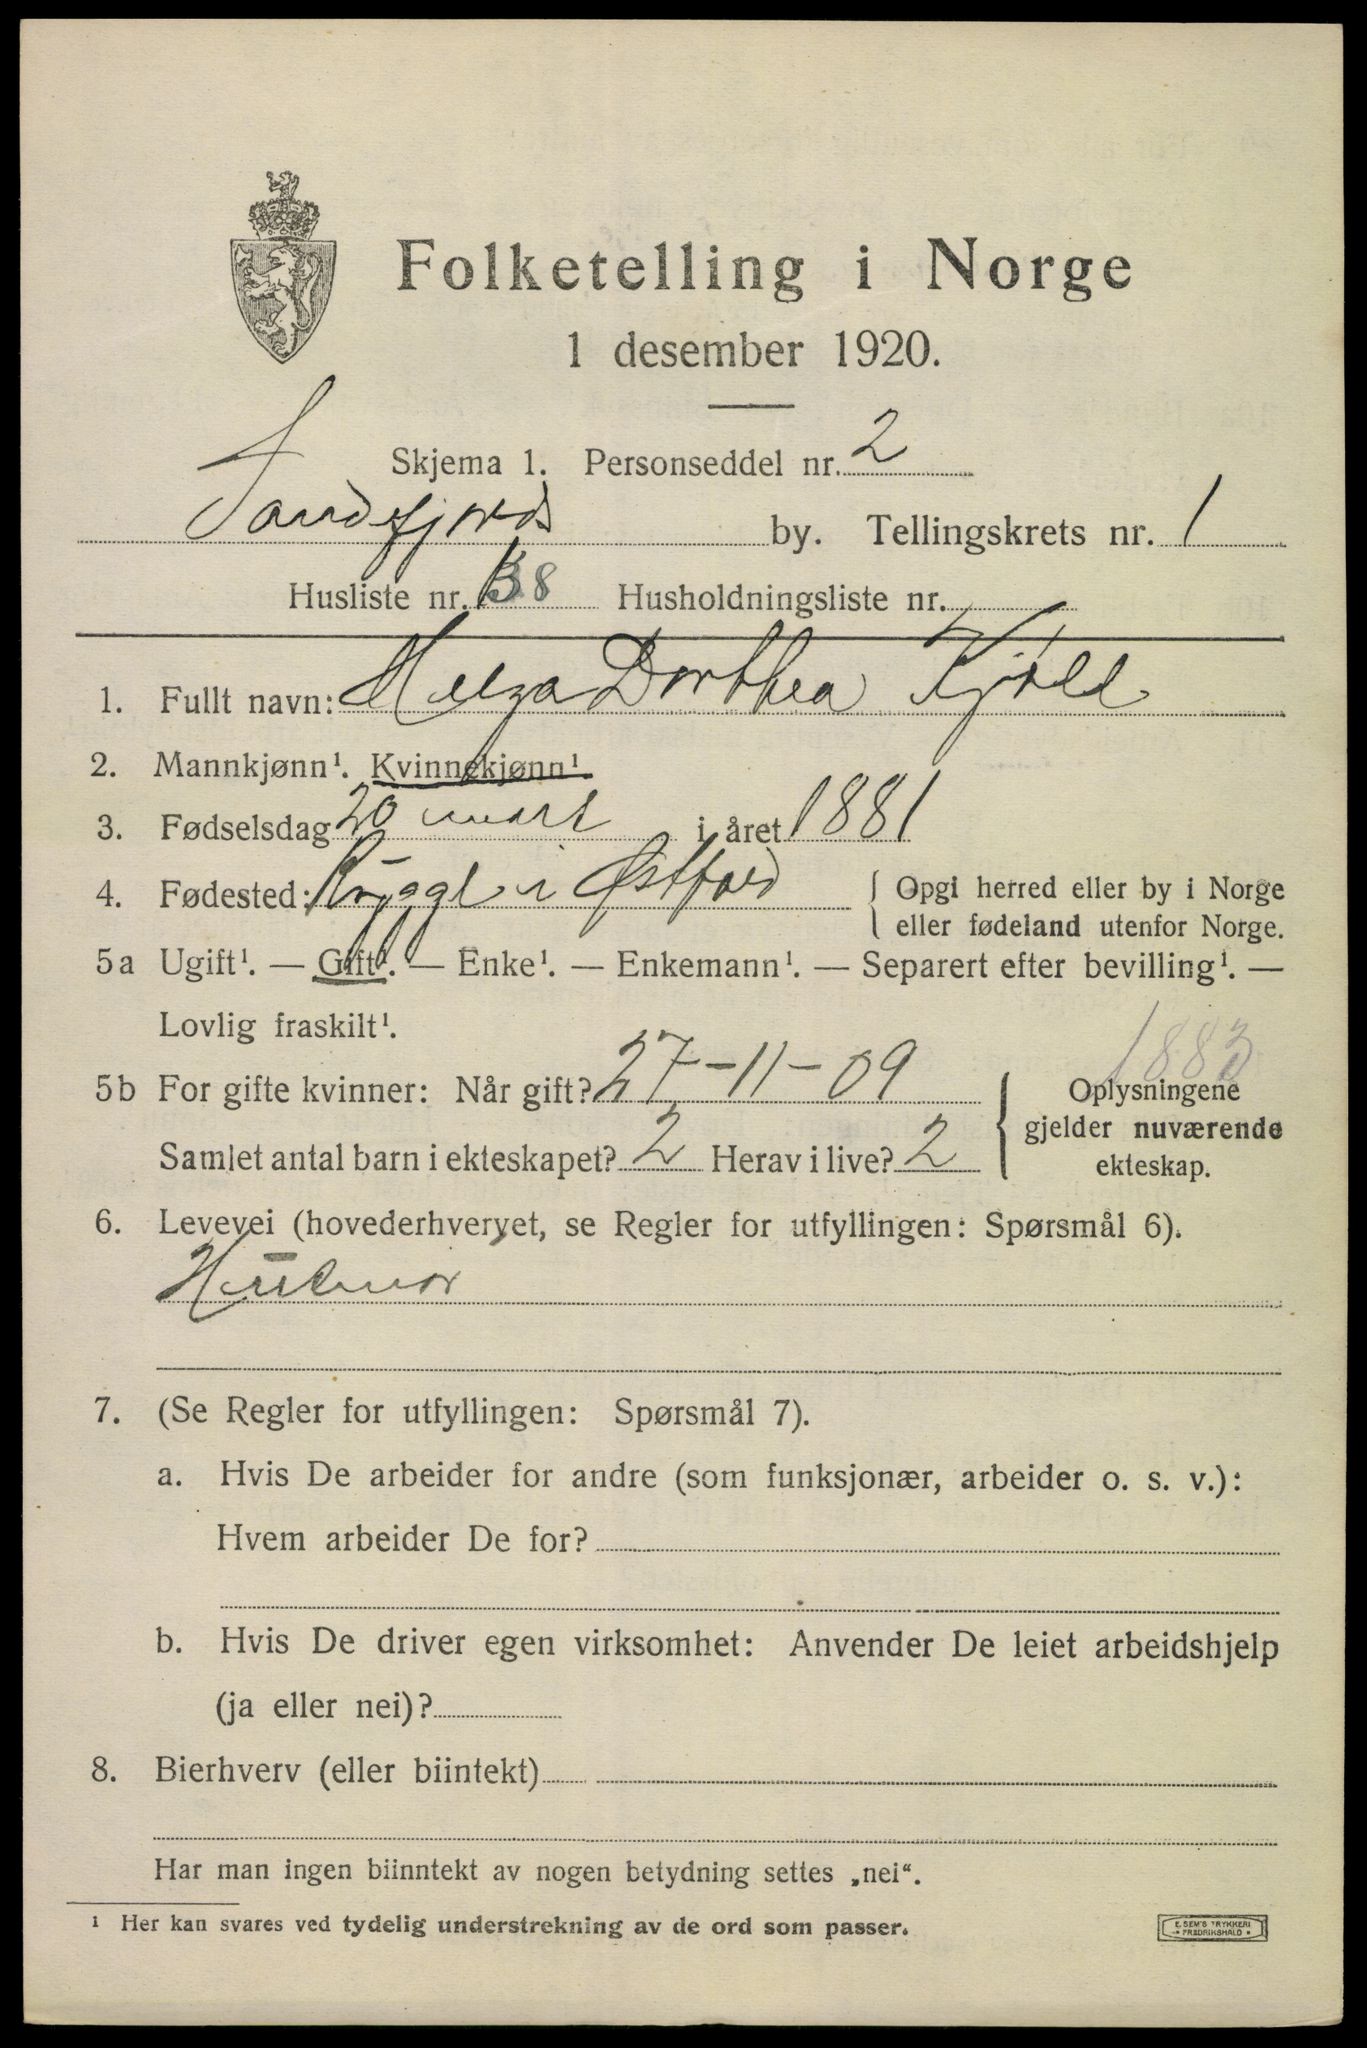 Folketelling i Norge
1 desember 1920.
Skjema 1. Personseddel nr. 2
Sandefjords by. Tellingskrets nr. 1
Husliste nr. 38 Husholdningsliste nr.
1. Fullt navn: Helga Dorthea Kjøle
2. Mannkjønn¹. Kvinnekjønn¹.
3. Fødselsdag 20 mars i året 1881
4. Fødested: Rygge i Østfold { Opgi herred eller by i Norge
eller fødeland utenfor Norge.
5a Ugift¹. — Gift¹. — Enke¹. — Enkemann¹. — Separert efter bevilling¹. —
Lovlig fraskilt¹.
1883
5b For gifte kvinner: Når gift? 27-11-09
Samlet antal barn i ekteskapet? 2 Herav i live? 2
{ Oplysningene
gjelder nuværende
ekteskap.
6. Levevei (hovederhvervet, se Regler for utfyllingen: Spørsmål 6).
Husmor
7. (Se Regler for utfyllingen: Spørsmål 7).
a. Hvis De arbeider for andre (som funksjonær, arbeider o. s. v.):
Hvem arbeider De for?
b. Hvis De driver egen virksomhet: Anvender De leiet arbeidshjelp
(ja eller nei)?
8. Bierhverv (eller biintekt)
Har man ingen biinntekt av nogen betydning settes „nei“.
¹ Her kan svares ved tydelig understrekning av de ord som passer.
E. SEM'S TRYKKERI
* FREDRIKSHALD *